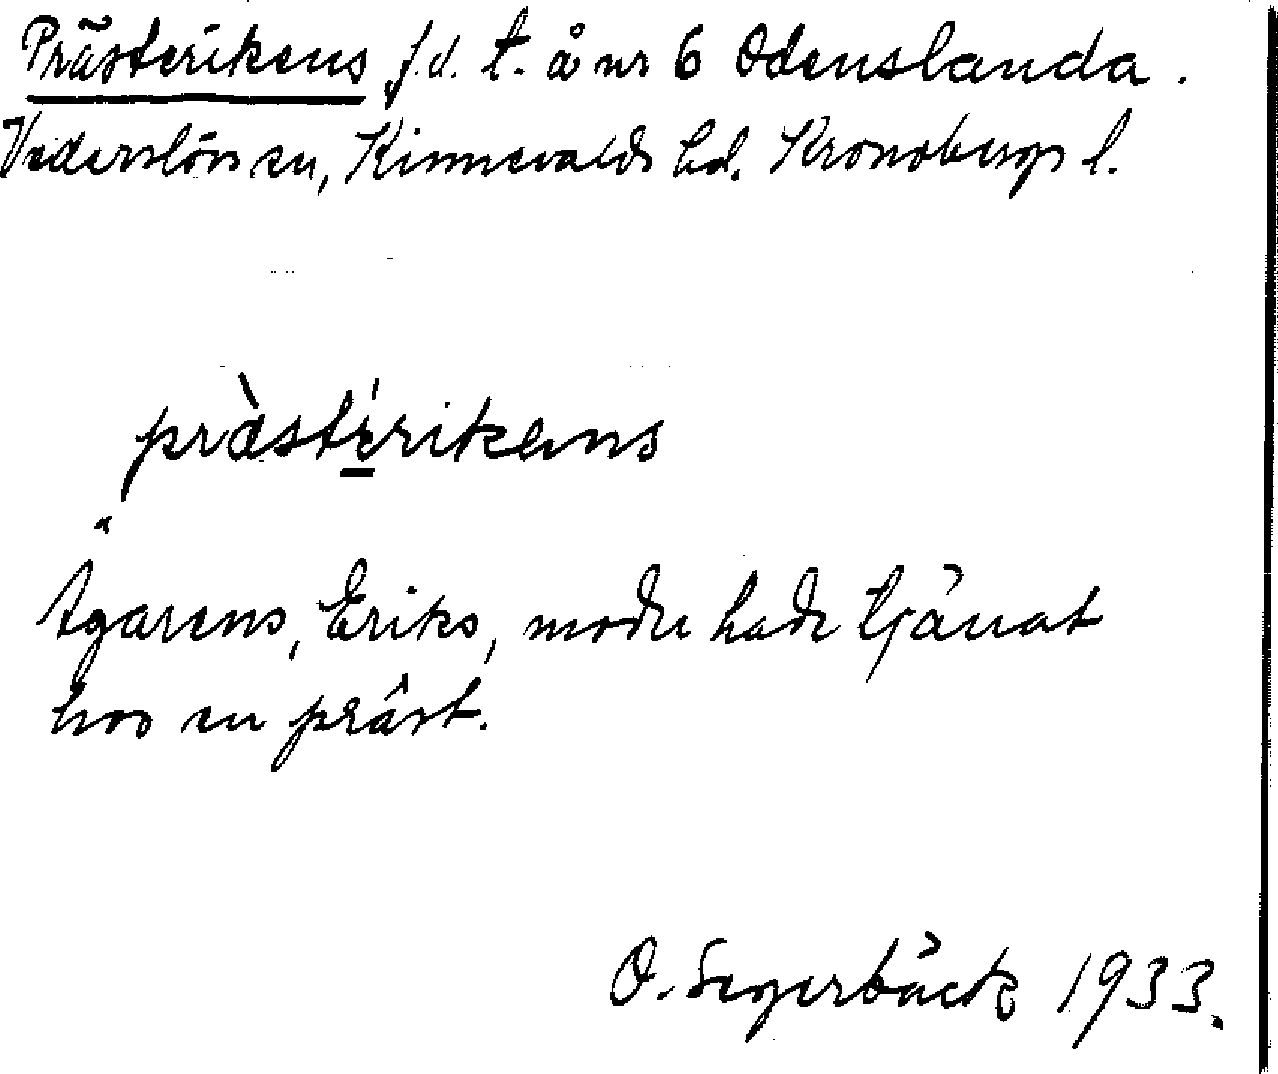 Prästerikens f.d. t. å nr 6 Odenslanda.
Vederslövs sn, Kinnevalds hd. Kronobergs l.
pràstérikens
Ägarens, Eriks, moder hade tjänat
hos en präst.
O. Segerbäck 1933.